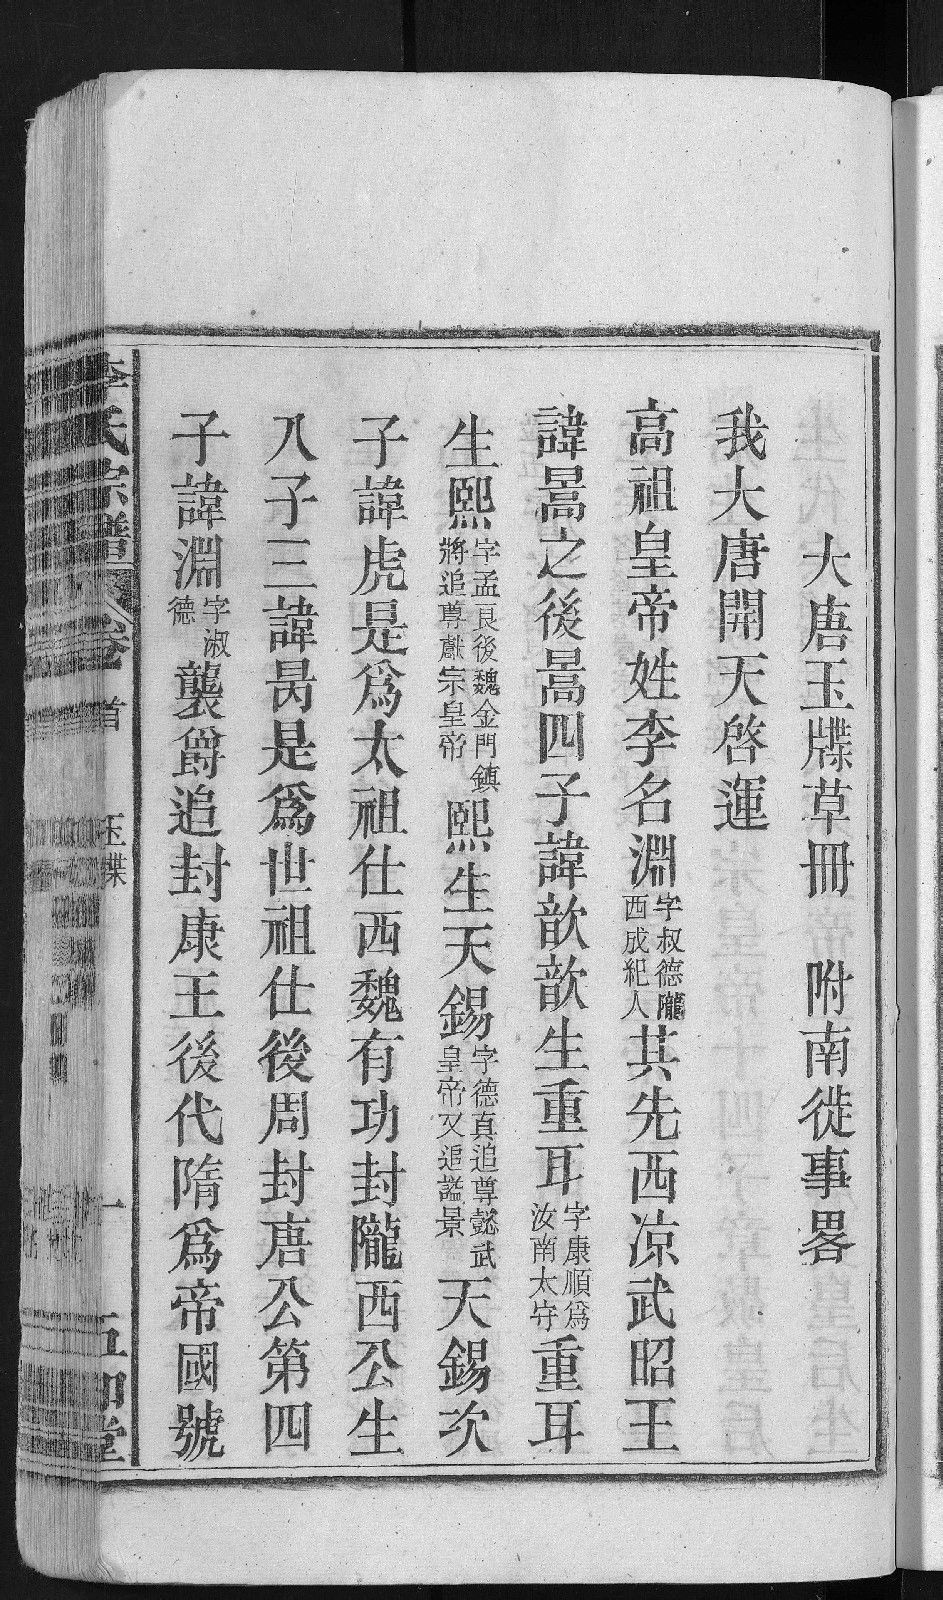 大唐玉牒草冊　附南徙事畧
我大唐開天啓運
高祖皇帝姓李名淵字叔德隴西成紀人其先西涼武昭王
諱暠之後暠四子諱歆歆生重耳字康順爲汝南太守重耳
生熙字孟良後魏金門鎮將追尊獻宗皇帝熙生天錫字德真追尊懿武皇帝又追謚景天錫次
子諱虎是爲太祖仕西魏有功封隴西公生
八子三諱昺是爲世祖仕後周封唐公第四
子諱淵字淑德襲爵追封康王後代隋爲帝國號
李氏宗譜　卷首　玉牒　一